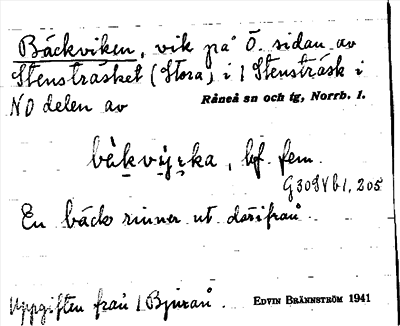 Bäckviken, vik på Ö. sidan av
Stensträsket (Stora) i 1 Stensträsk i
NO delen av Råneå sn och tg, Norrb. l.
bf. fem.
En bäck rinner ut därifrån.
Uppgiften från 1 Bjurån. EDVIN BRÄNNSTRÖM 1941